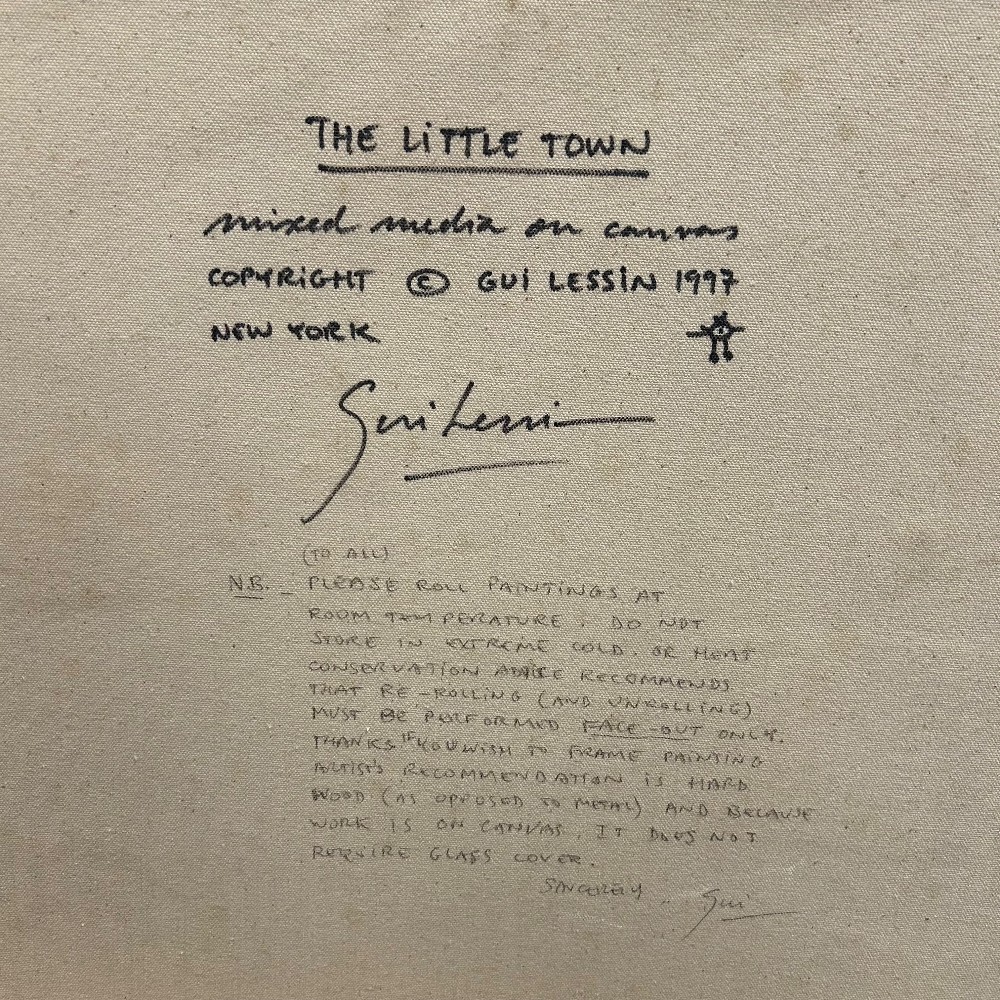 THE LiTTLE TOWN
mixed media on canvas
COPYRiGHT © GUi LESSiN 1997
NEW YORK
Gui Lessin
(TO ALL)
N.B. _ PLEASE ROLL PAINTINGS AT
ROOM TEMPERATURE. DO NOT
STORE IN EXTREME COLD. OR HEAT
CONSERVATION ADVICE RECOMMENDS
THAT RE-ROLLING (AND UNROLLING)
MUST BE PERFORMED FACE-OUT ONLY.
THANKS IF YOU WISH TO FRAME PAINTING
ARTIST'S RECOMMENDATION IS HARD
WOOD (AS OPPOSED TO METAL) AND BECAUSE
WORK IS ON CANVAS, IT DOES NOT
REQUIRE GLASS COVER.
SINCERELY .. Gui